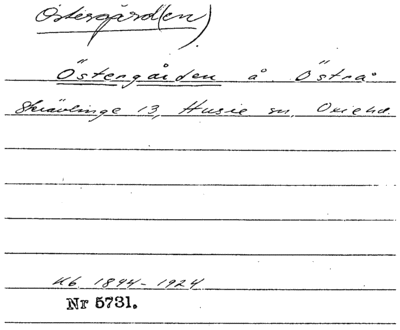 Östergård(en)
Östergården å Östra
Skrävlinge 13, Husie sn, Oxie hd.
Kb. 1894-1924
Nr 5731.